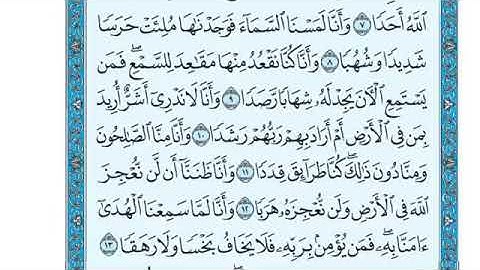 ٱللَّهُ أَحَدًا ٧ وَأَنَّا لَمَسْنَا ٱلسَّمَآءَ فَوَجَدْنَٰهَا مُلِئَتْ حَرَسًا
شَدِيدًا وَشُهُبًا ٨ وَأَنَّا كُنَّا نَقْعُدُ مِنْهَا مَقَٰعِدَ لِلسَّمْعِۖ فَمَن
يَسْتَمِعِ ٱلْأٓنَ يَجِدْ لَهُۥ شِهَابًا رَّصَدًا ٩ وَأَنَّا لَا نَدْرِىٓ أَشَرٌّ أُرِيدَ
بِمَن فِى ٱلْأَرْضِ أَمْ أَرَادَ بِهِمْ رَبُّهُمْ رَشَدًا ١٠ وَأَنَّا مِنَّا ٱلصَّٰلِحُونَ
وَمِنَّا دُونَ ذَٰلِكَۖ كُنَّا طَرَآئِقَ قِدَدًا ١١ وَأَنَّا ظَنَنَّآ أَن لَّن نُّعْجِزَ
ٱللَّهَ فِى ٱلْأَرْضِ وَلَن نُّعْجِزَهُۥ هَرَبًا ١٢ وَأَنَّا لَمَّا سَمِعْنَا ٱلْهُدَىٰٓ
ءَامَنَّا بِهِۦۖ فَمَن يُؤْمِنۢ بِرَبِّهِۦ فَلَا يَخَافُ بَخْسًا وَلَا رَهَقًا ١٣